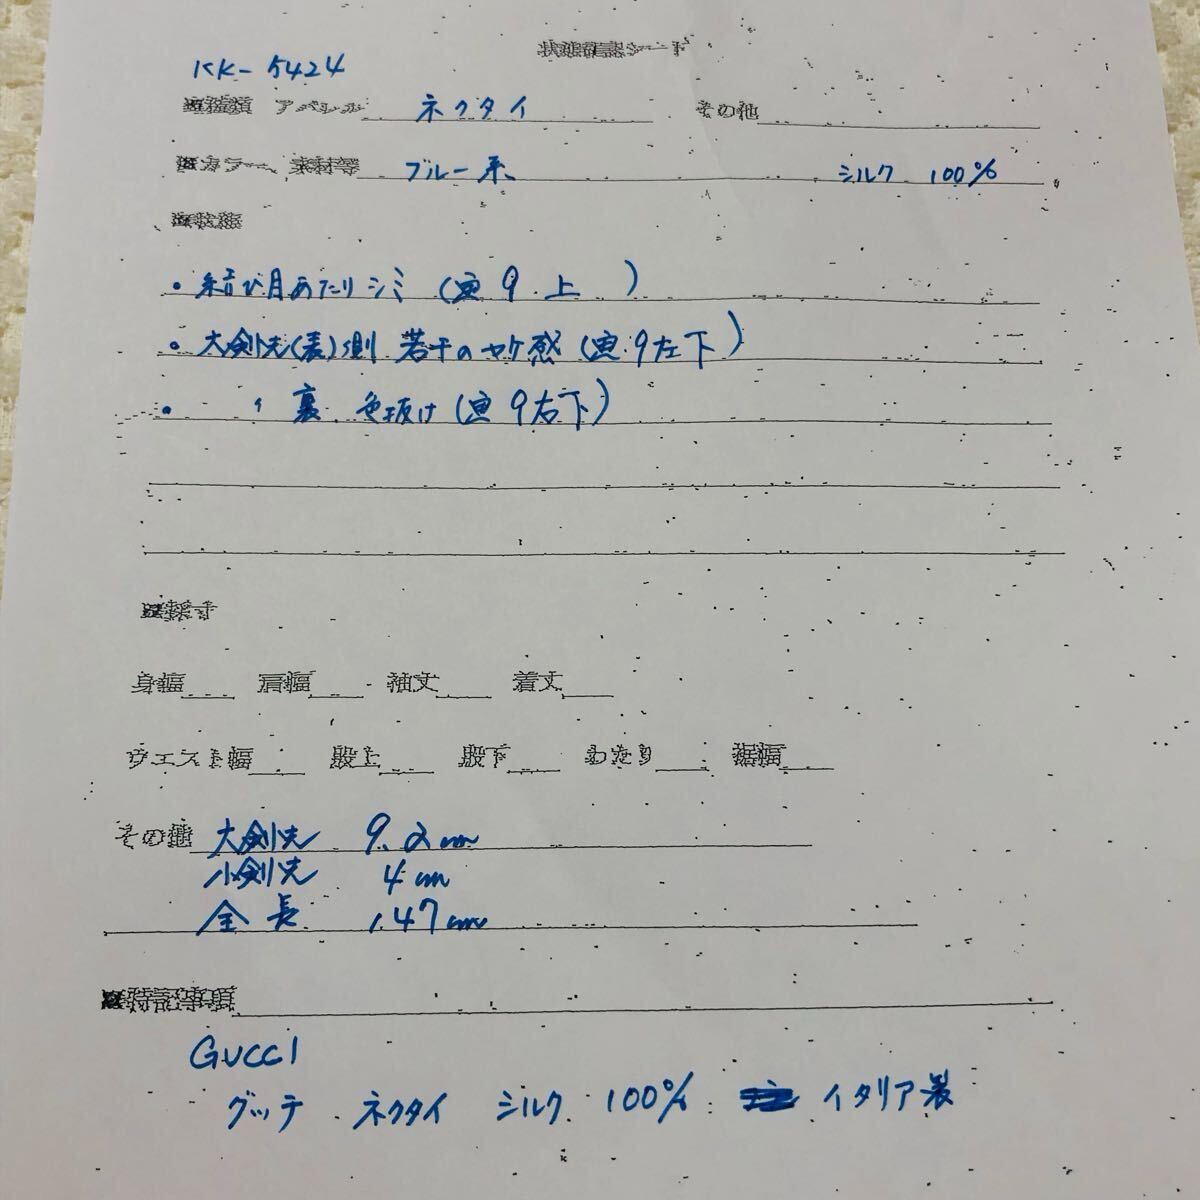 状態確認シート
KK-5424
■種類 アパレル ネクタイ その他
■カラー、素材等 ブルー系 シルク 100%
■状態
• 結び目あたりシミ (画9 上 )
• 大剣先(表)側 若干のヤケ感 (画9左下)
• 〃 裏 色抜け (画9右下)
■採寸
身幅 肩幅 袖丈 着丈
ウエスト幅 股上 股下 わたり 裾幅
その他 大剣先 9.2cm
小剣先 4cm
全長 147cm
■特記事項
GUCCI
グッチ ネクタイ シルク 100% イタリア製